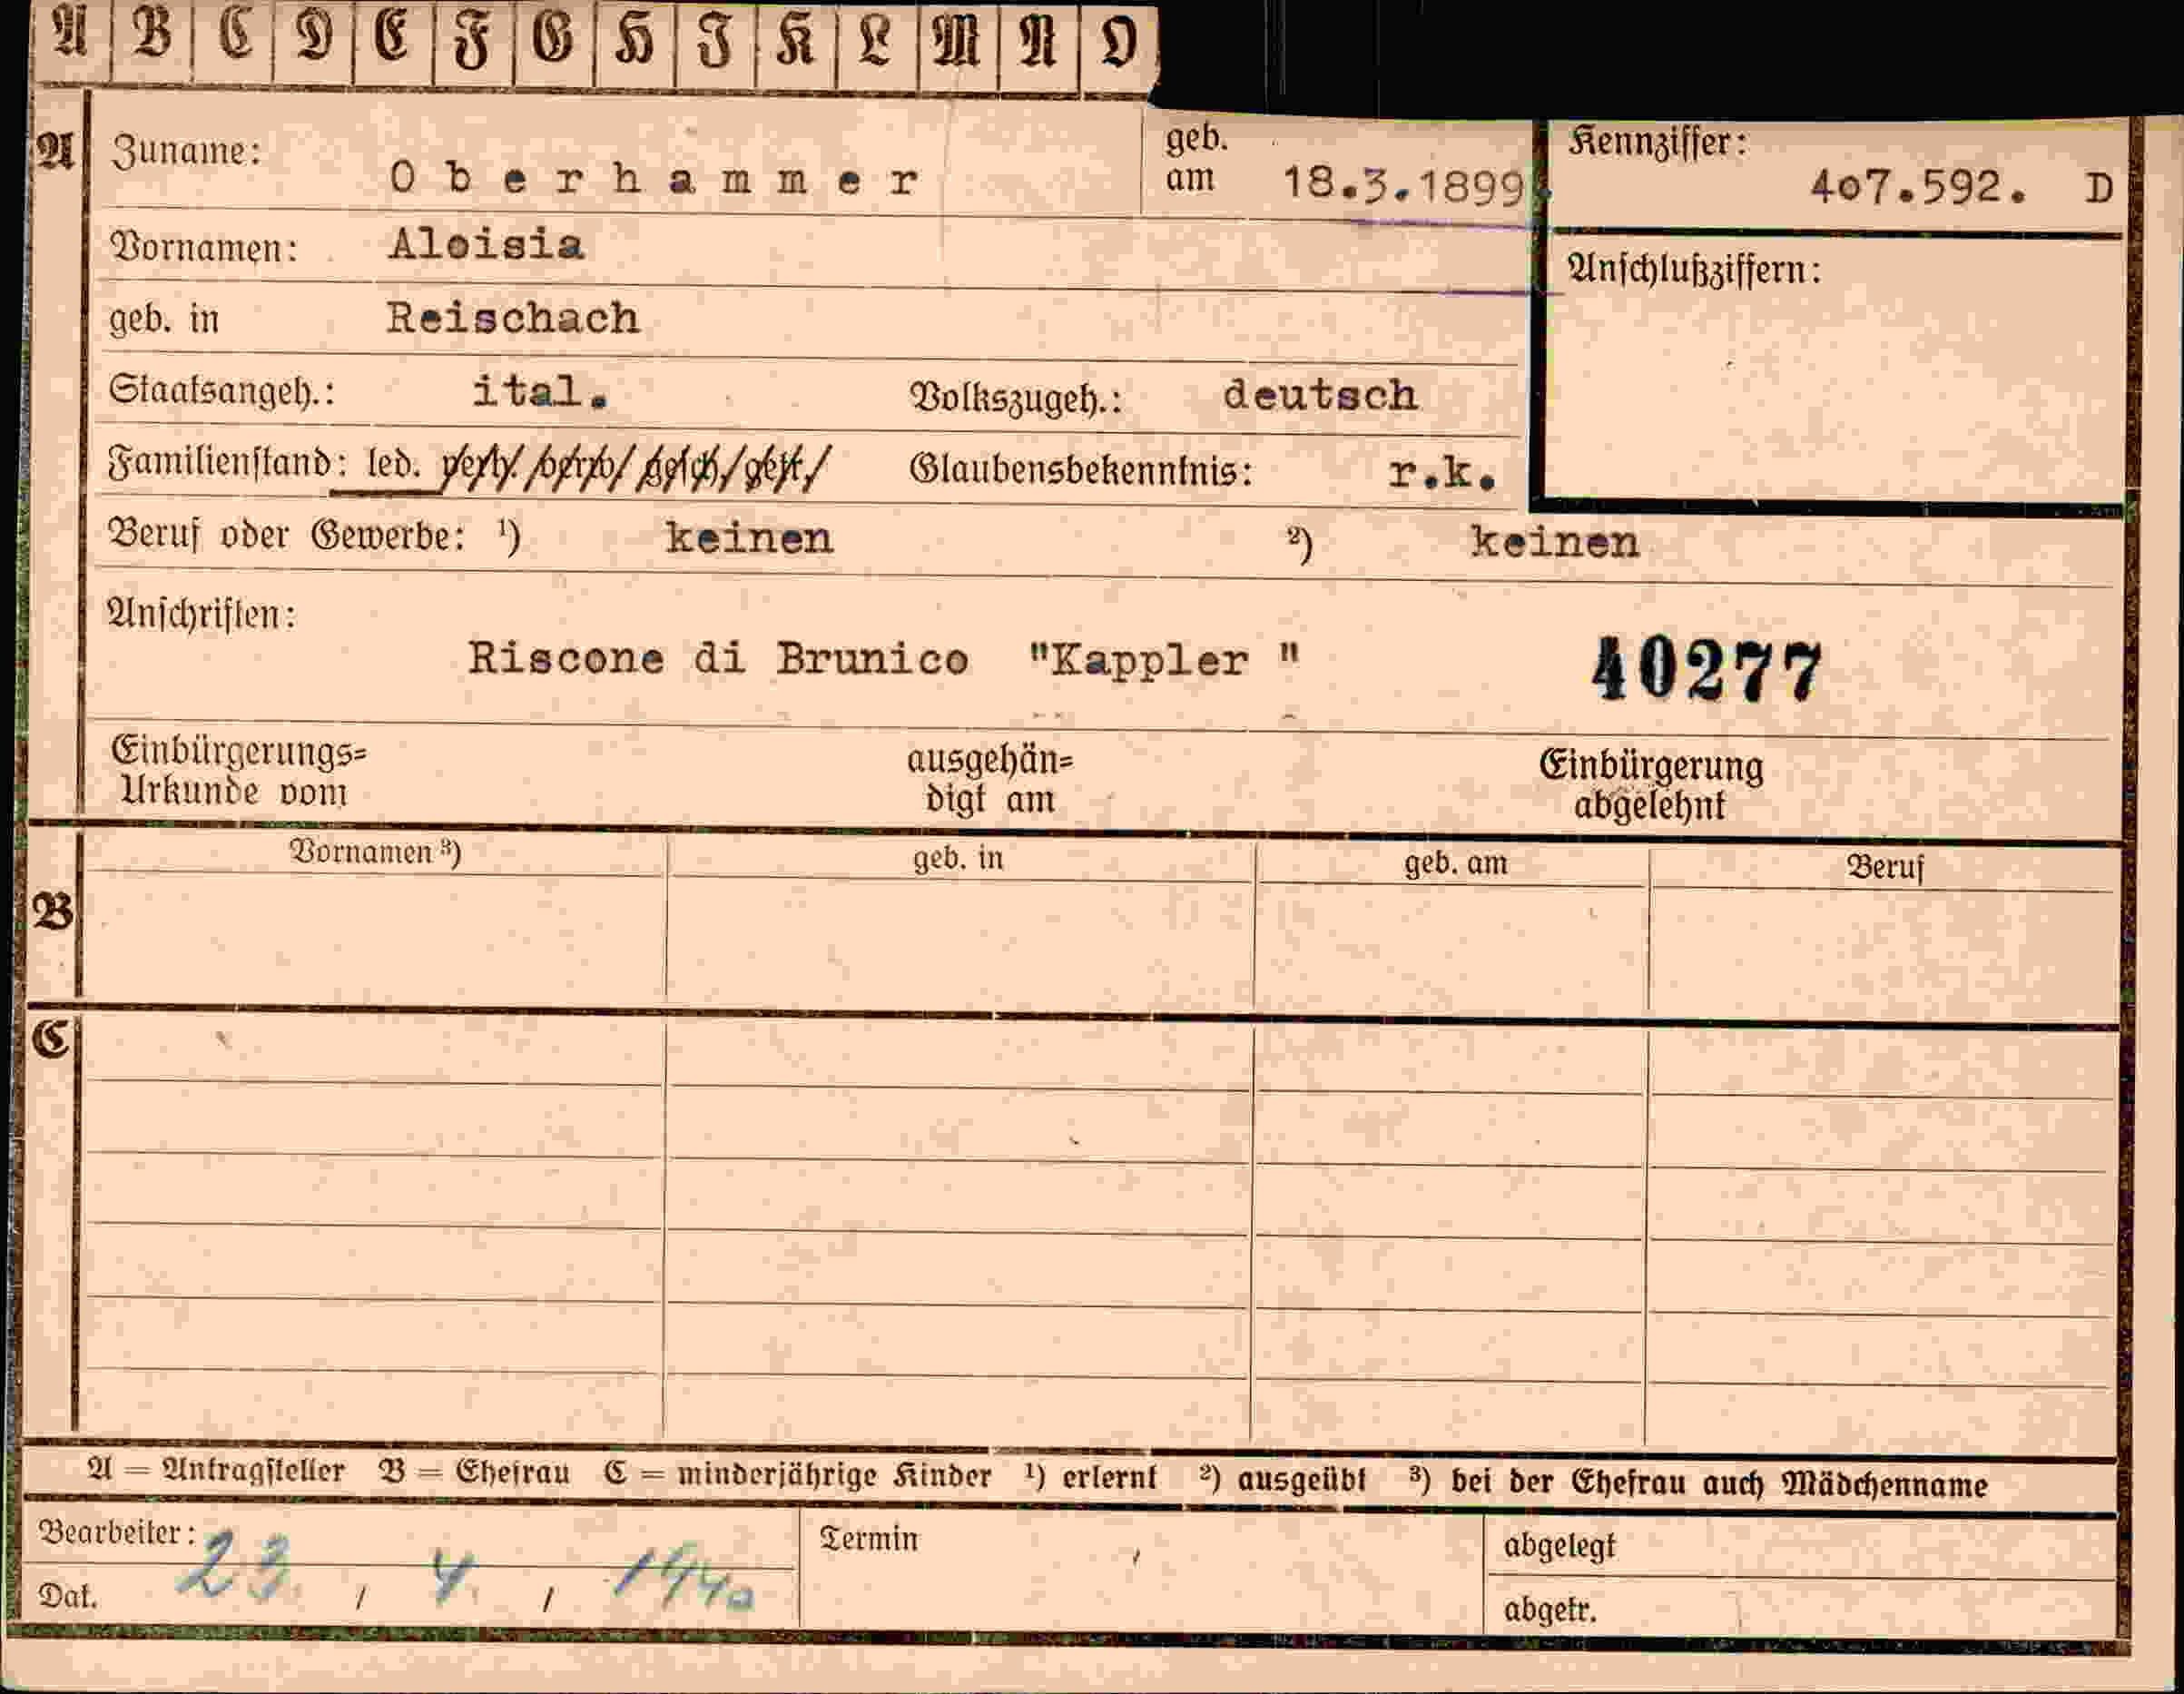 A B C D E F G H I K L M N O
A Zuname: Oberhammer geb. am 18.3.1899. Kennziffer: 407.592. D
Vornamen: Aloisia
Anschlußziffern:
geb. in Reischach
Staatsangeh.: ital. Volkszugeh.: deutsch
Familienstand: led. verh. verw. gesch. gest. Glaubensbekenntnis: r.k.
Beruf oder Gewerbe: ¹) keinen ²) keinen
Anschriften:
Riscone di Brunico "Kappler " 40277
Einbürgerungs= ausgehän= Einbürgerung
Urkunde vom digt am abgelehnt
Vornamen ³) geb. in geb. am Beruf
B
C
A = Antragsteller B = Ehefrau C = minderjährige Kinder ¹) erlernt ²) ausgeübt ³) bei der Ehefrau auch Mädchenname
Bearbeiter: Termin abgelegt
Dat. 23 / 4 / 1940 abgetr.